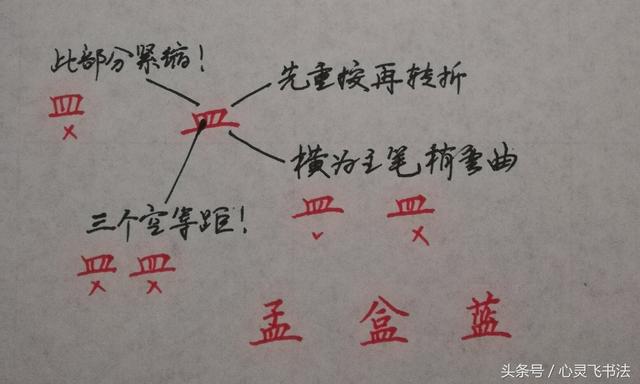 此部分紧缩！
皿
×
皿
先重按再转折
横为主笔稍弯曲
皿 皿
✓ ×
三个空等距！
皿 皿
× ×
孟 盒 蓝
头条号／心灵飞书法